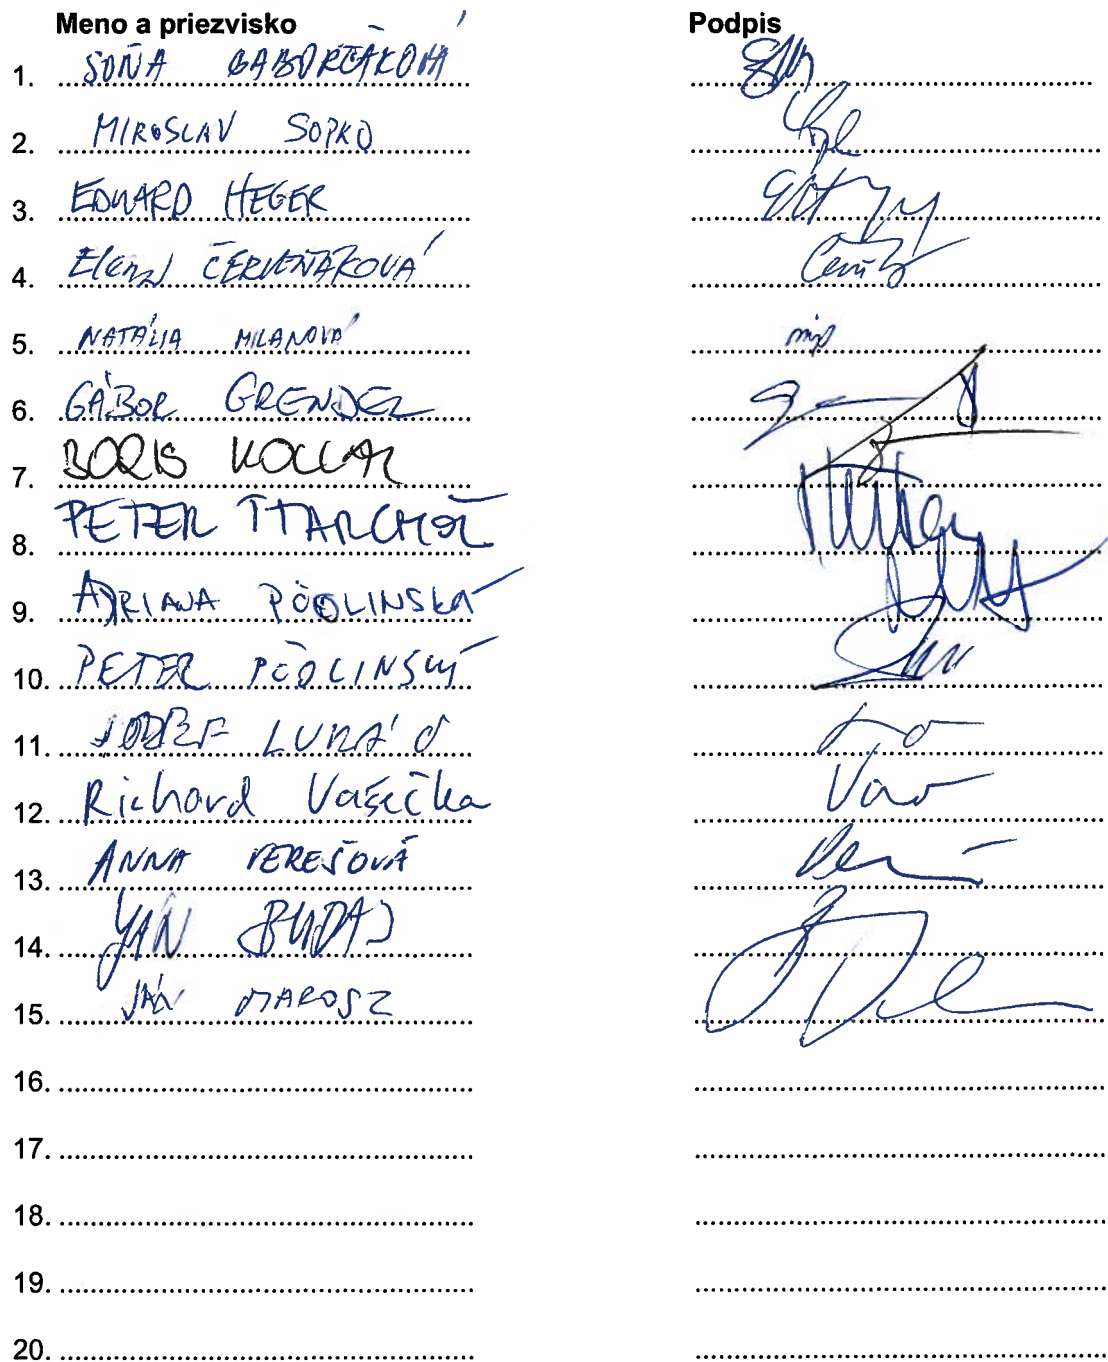 Meno a priezvisko Podpis
1. SOŇA GABORČÁKOVÁ
2. MIROSLAV SOPKO
3. EDUARD HEGER
4. Elena ČERVEŇÁKOVÁ
5. NATÁLIA MILANOVÁ
6. GÁBOR GRENDEL
7. BORIS KOLLÁR
8. PETER ŠTARCHOŇ
9. ADRIANA PČOLINSKÁ
10. PETER PČOLINSKÝ
11. JOZEF LUKÁČ
12. Richard Vašečka
13. ANNA VEREŠOVÁ
14. JÁN BUDAJ
15. JÁN MAROSZ
16.
17.
18.
19.
20.